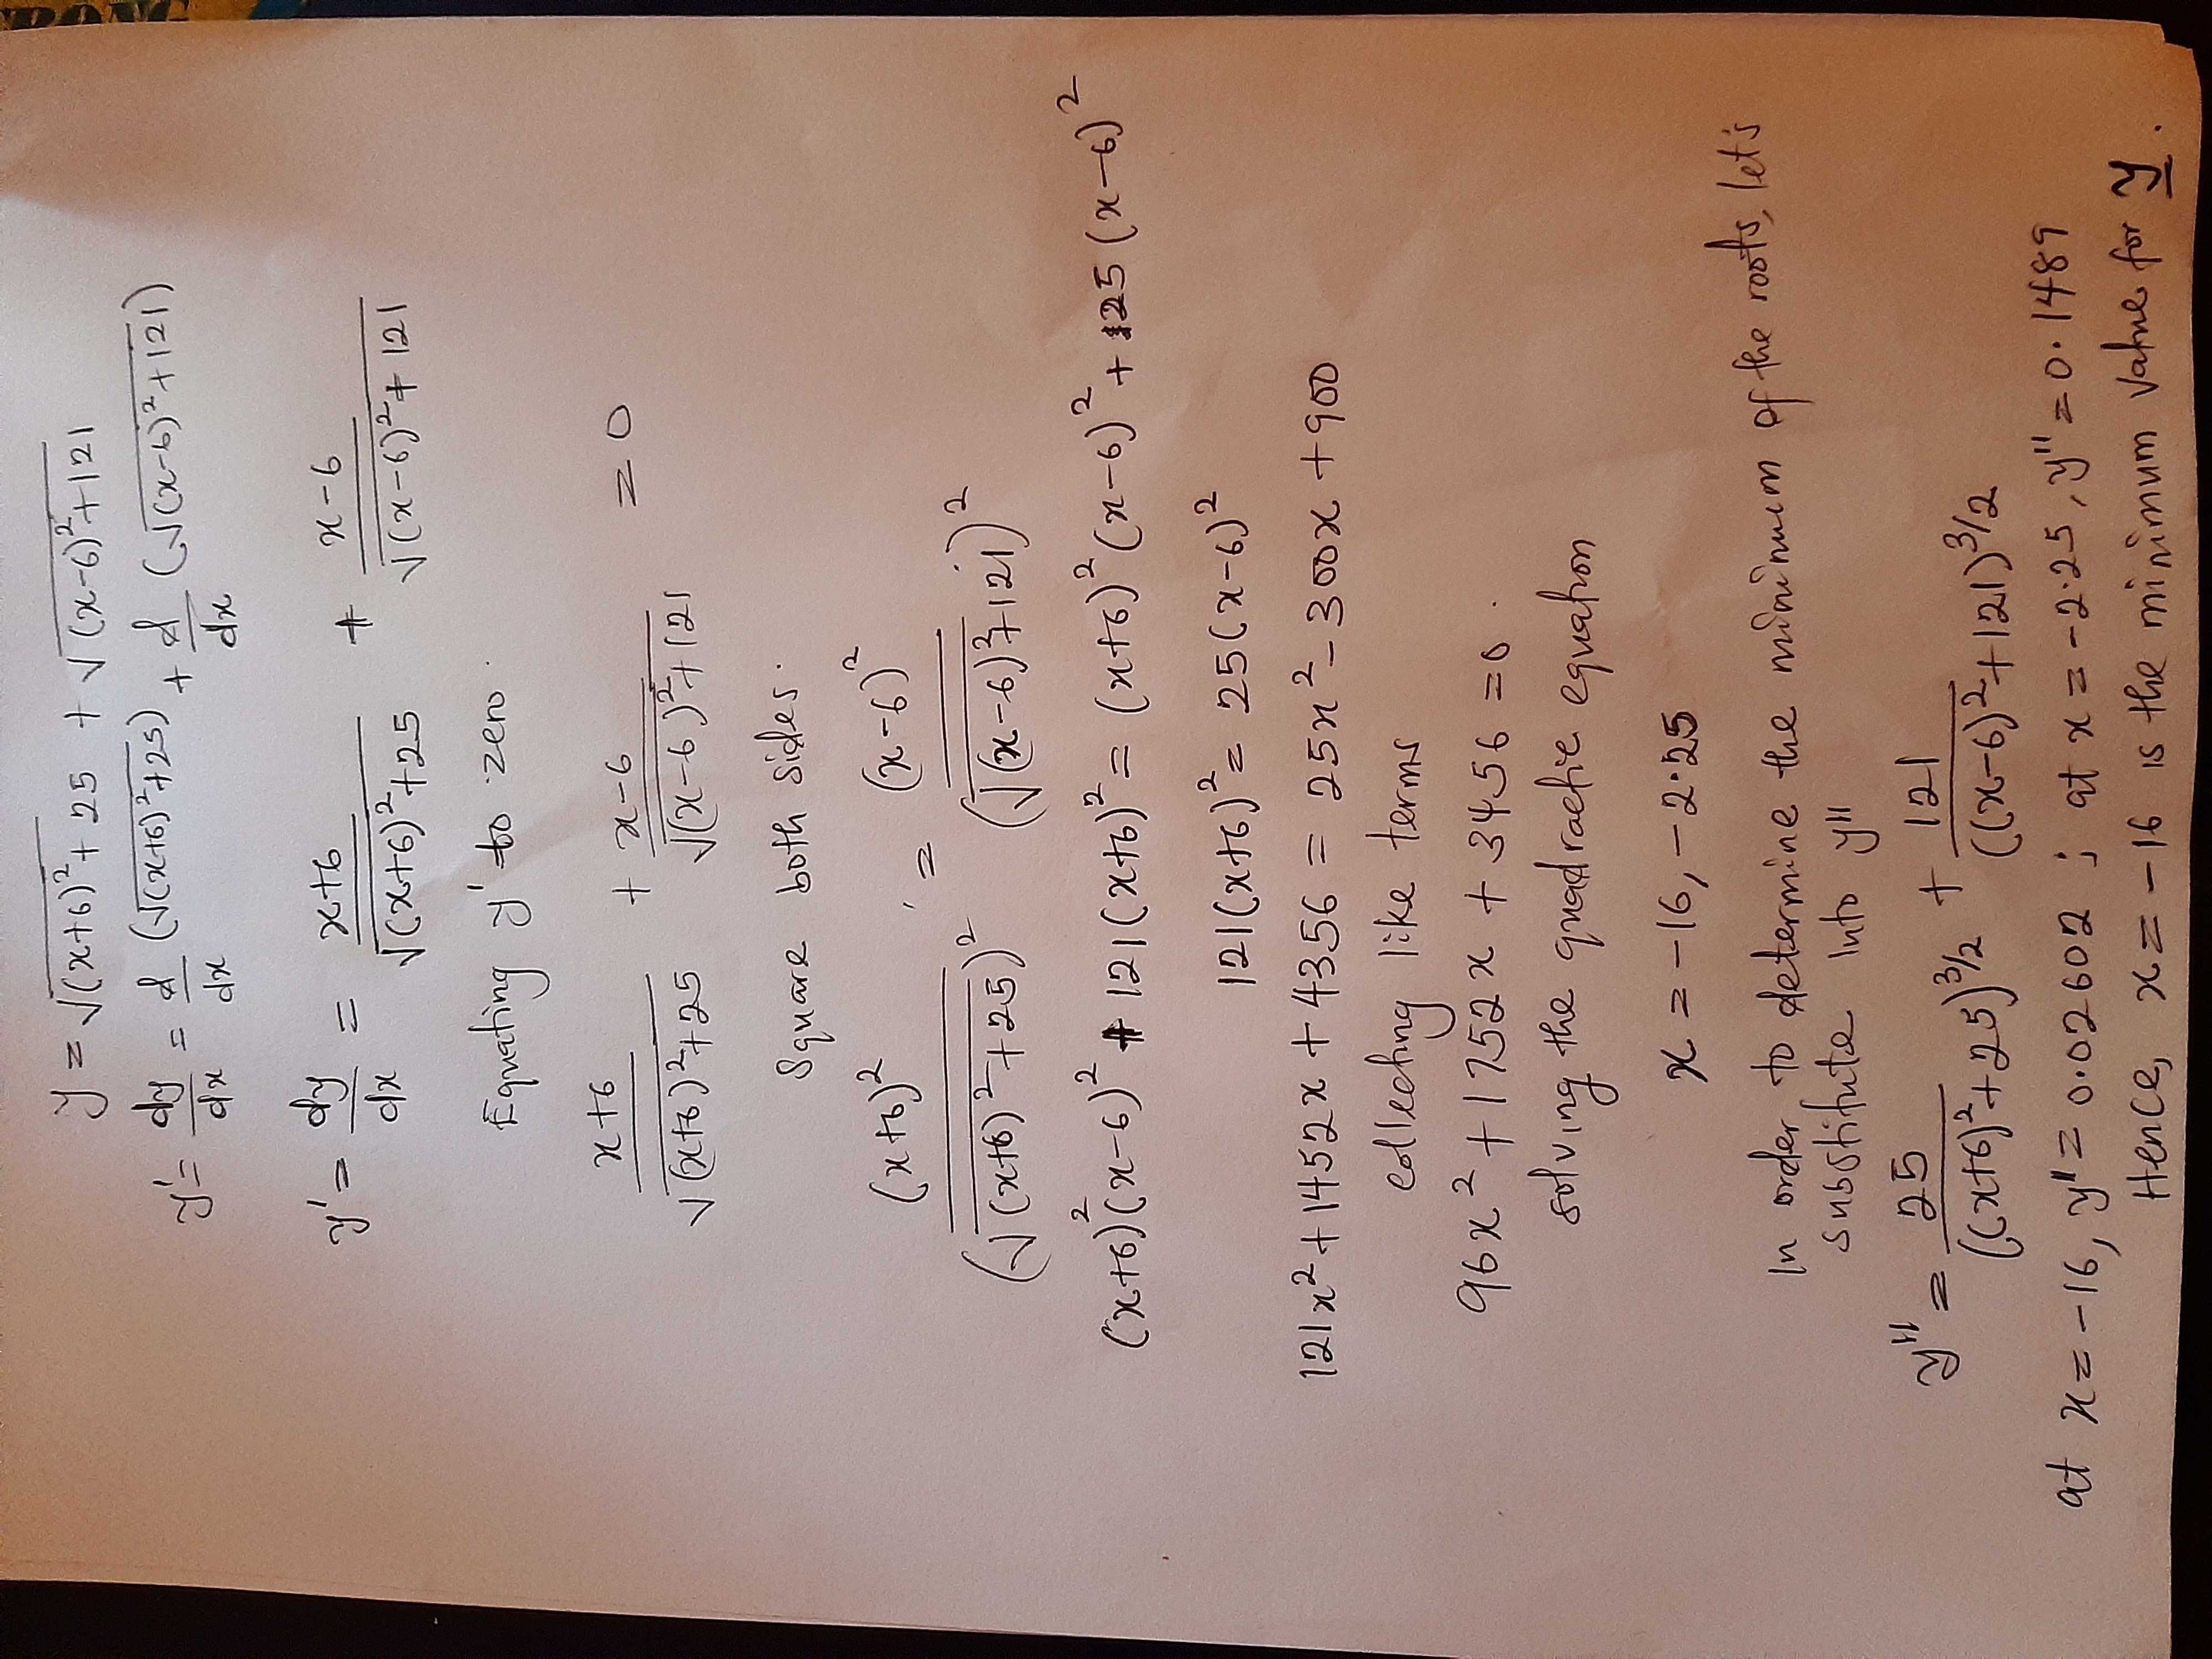 y = √(x+6)²+25 + √(x-6)²+121
y' = dy/dx = d/dx (√(x+6)²+25) + d/dx (√(x-6)²+121)
y' = dy/dx = x+6/√(x+6)²+25 + x-6/√(x-6)²+121
Equating y' to zero.
x+6/√(x+6)²+25 + x-6/√(x-6)²+121 = 0
Square both sides.
(x+6)²/(√(x+6)²+25)² = (x-6)²/(√(x-6)²+121)²
(x+6)²(x-6)² + 121(x+6)² = (x+6)²(x-6)² + 25(x-6)²
121(x+6)² = 25(x-6)²
121x² + 1452x + 4356 = 25x² - 300x + 900
collecting like terms
96x² + 1752x + 3456 = 0.
solving the quadractic equation
x = -16, -2.25
In order to determine the minimum of the roots, let's
substitute into y''
y'' = 25/((x+6)²+25)^3/2 + 121/((x-6)²+121)^3/2
at x = -16, y'' = 0.02602 ; at x = -2.25, y'' = 0.1489
Hence, x = -16 is the minimum value for y.